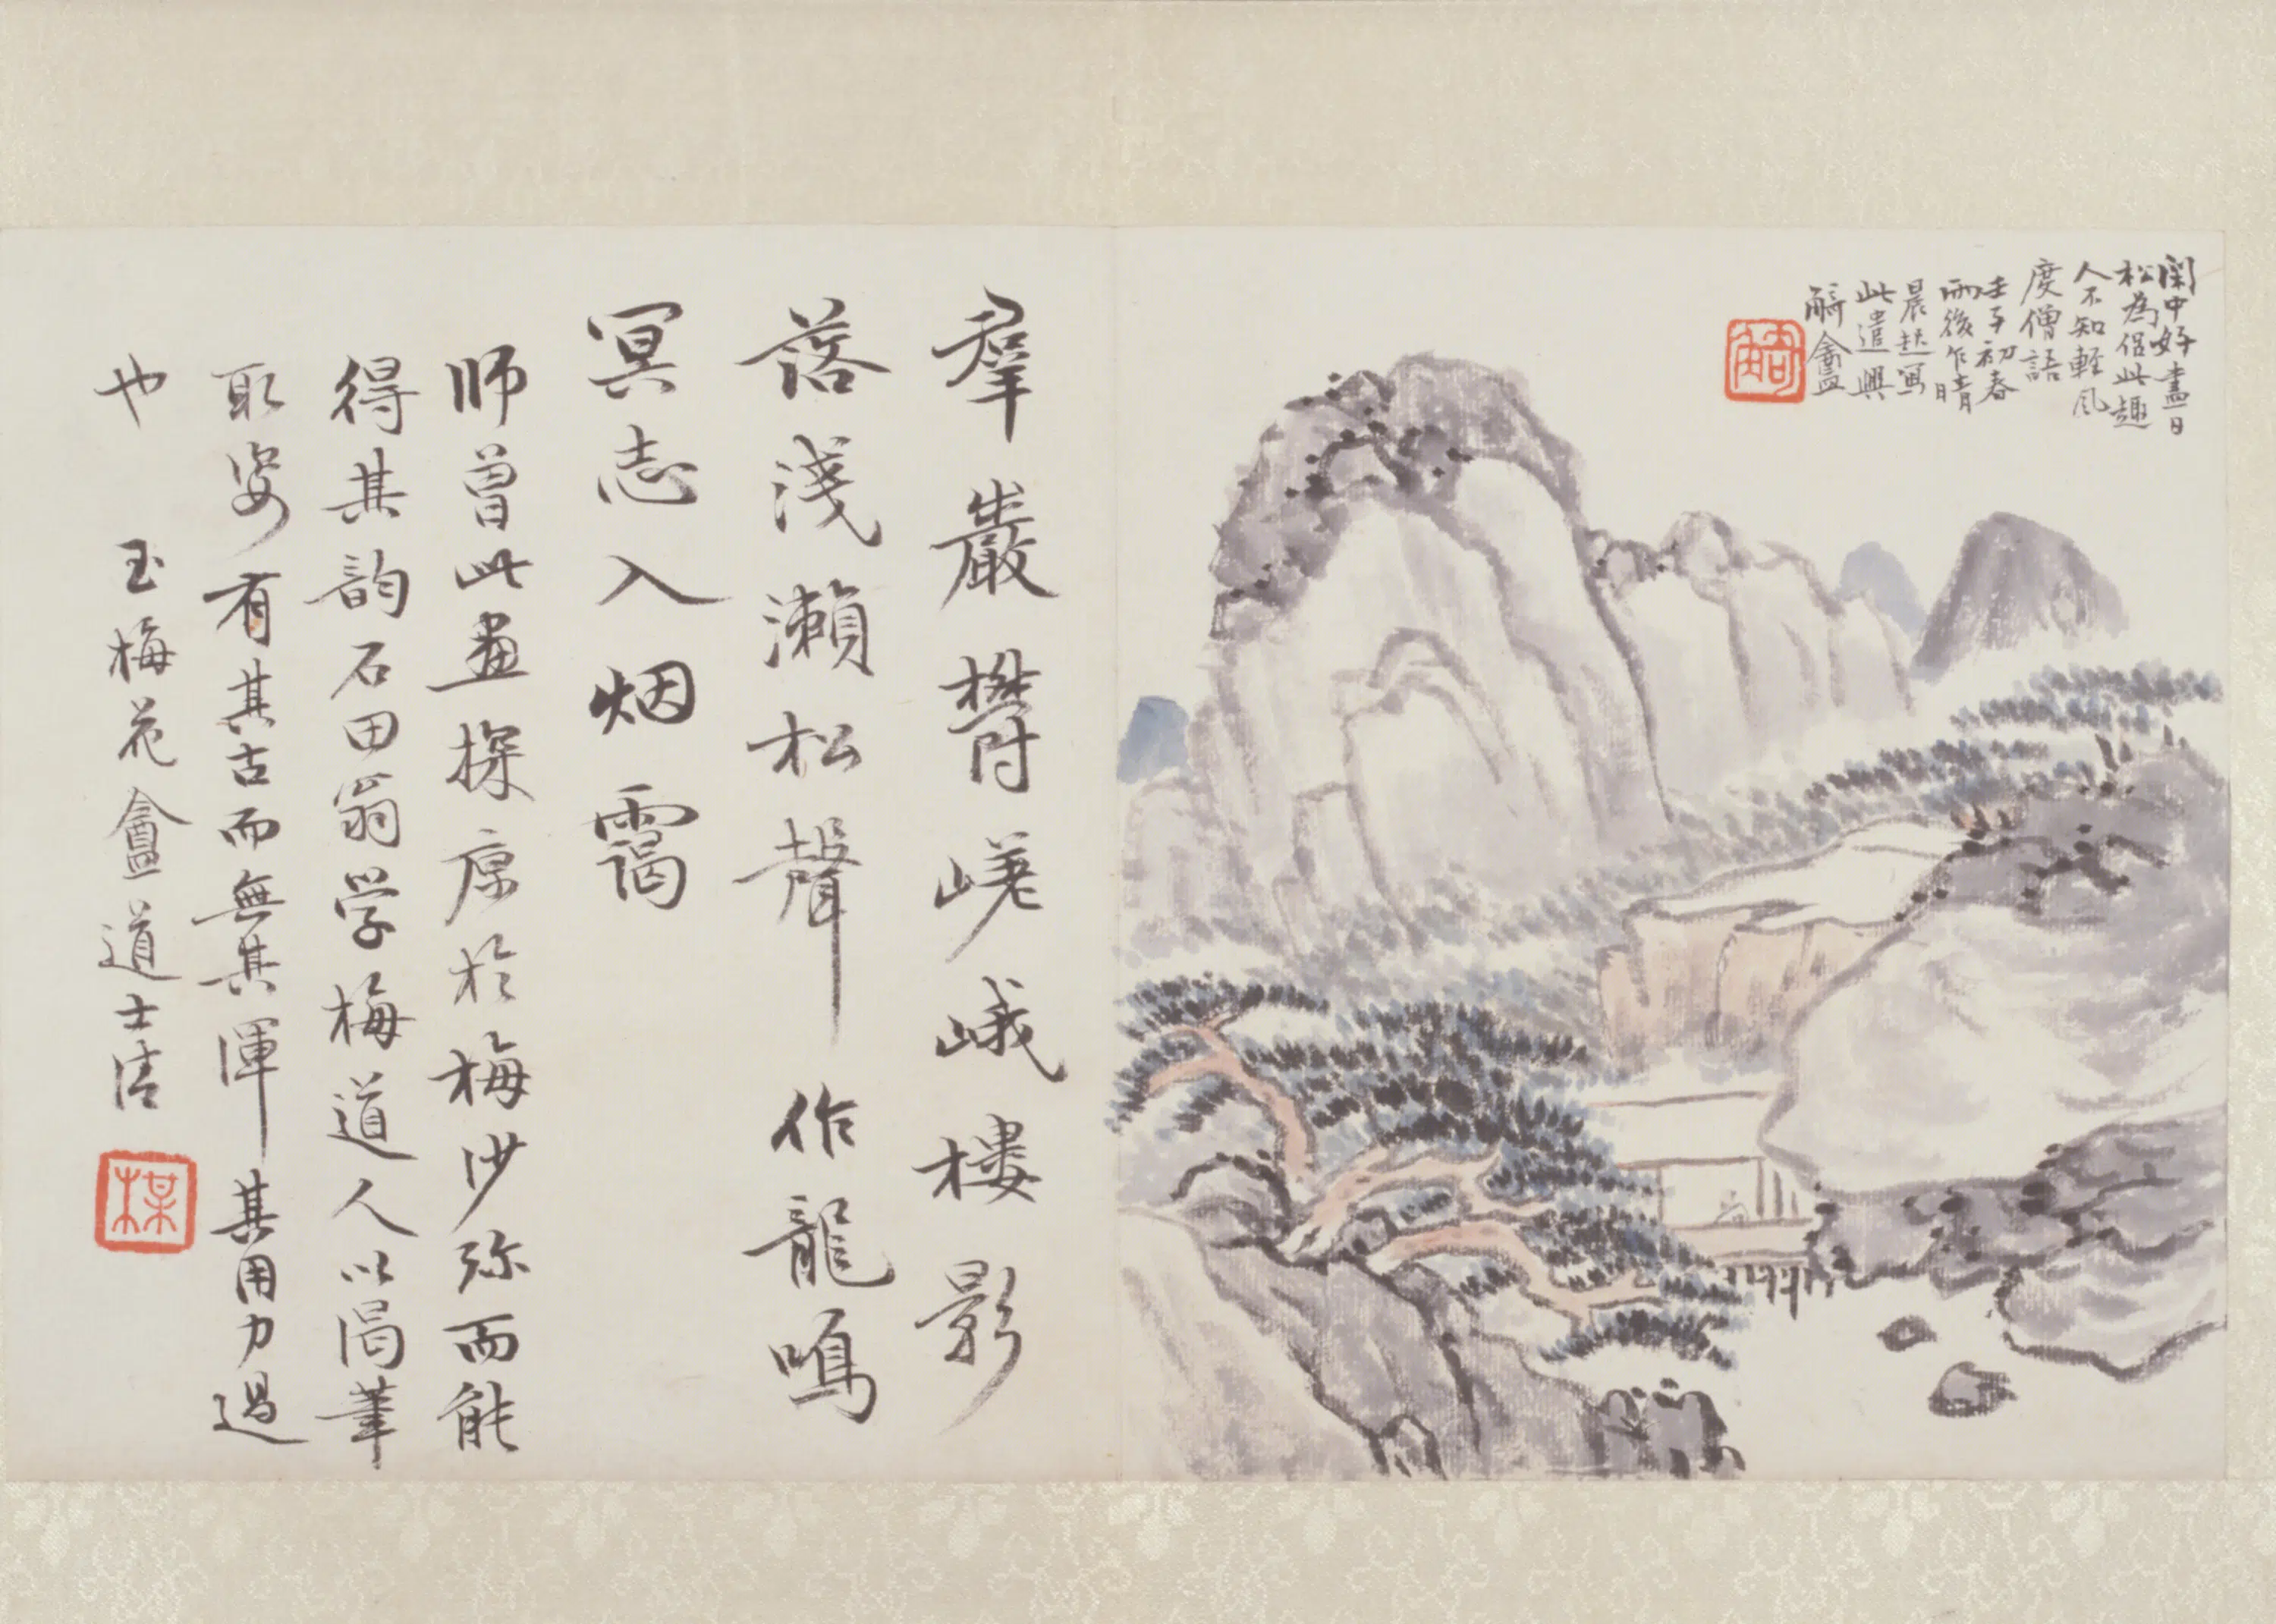 閑中好盡日
松為侶此趣
人不知輕風
度僧語
壬子初春
雨後乍晴
晨起寫
此遣興
觭盦
觭
羣巖欝嵯峨樓影
落淺瀨松聲作龍鳴
冥志入烟靄
師曾此畫探原於梅沙弥而能
得其韵石田翁学梅道人以渴筆
取姿有其古而無其渾其用力過
也 玉梅花盦道士清
楳